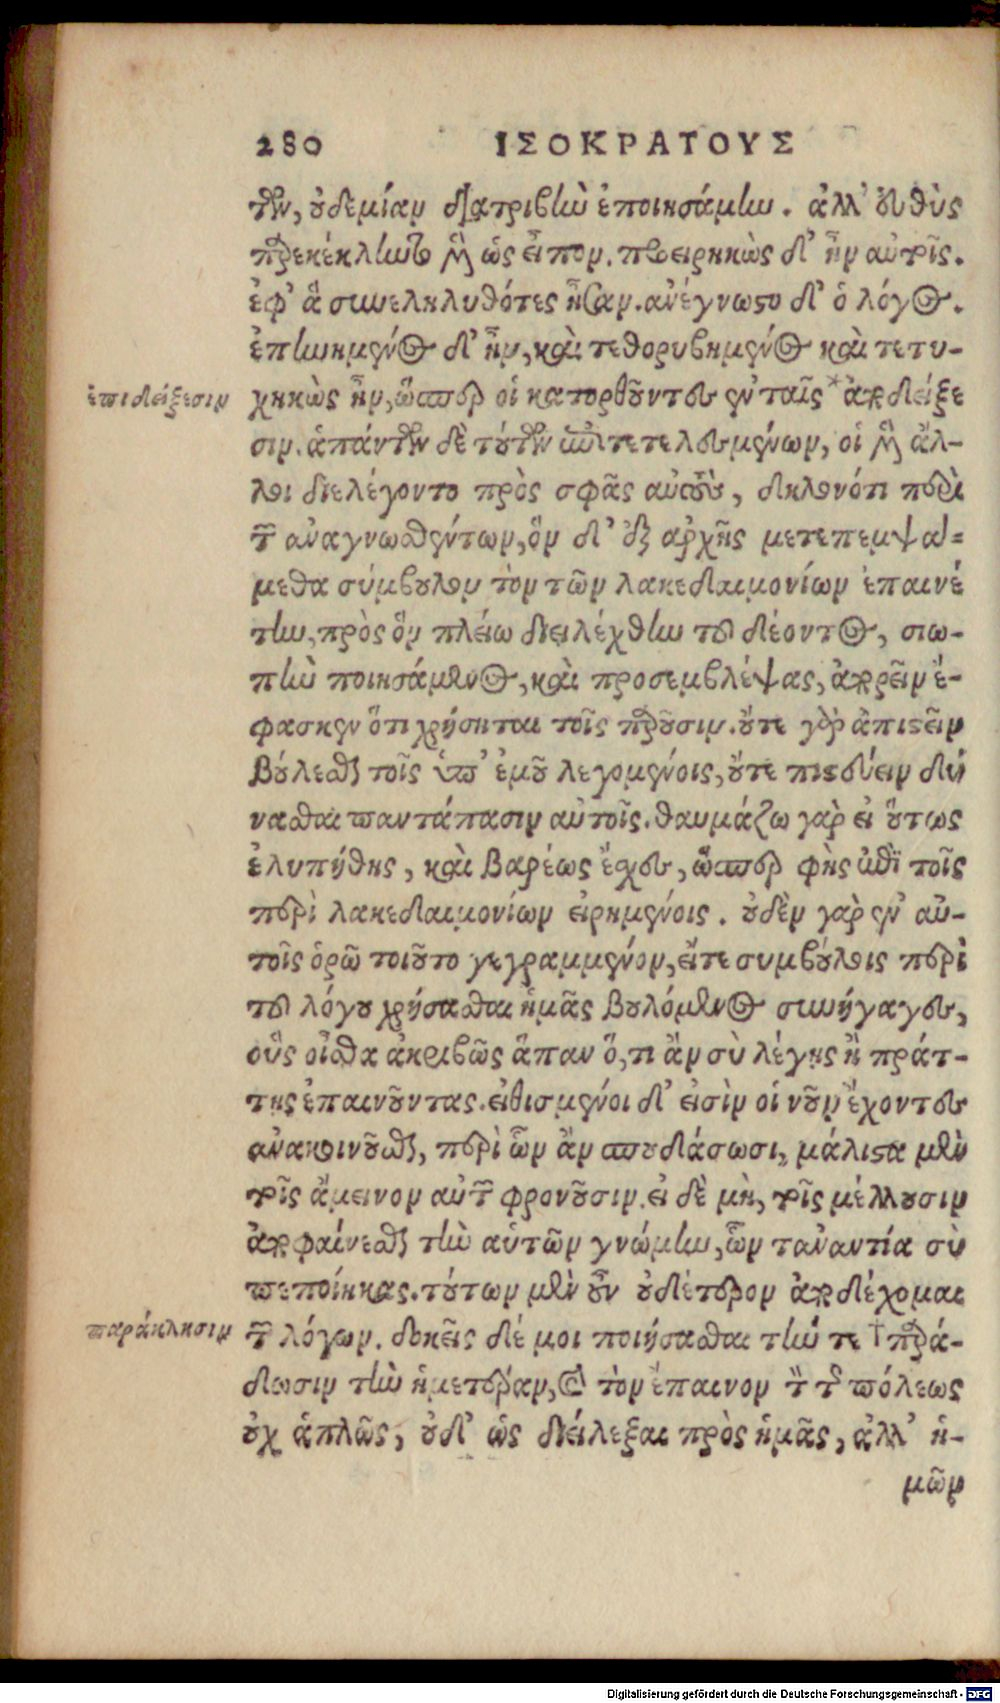 280 ΙΣΟΚΡΑΤΟΥΣ
των, οὐδεμίαν διατριβὴν ἐποιησάμην. ἀλλ' εὐθὺς
παρεκέκληντο μὲν ὡς εἶπον. προειρηκὼς δ' ἦν αὐτοῖς.
ἐφ' ἃ συνεληλυθότες ἦσαν. ἀνέγνωστο δ' ὁ λόγος.
ἐπῃνημένος δ' ἦν, καὶ τεθορυβημένος καὶ τετυ-
χηκὼς ἦν, ὥσπερ οἱ κατορθοῦντες ἐν ταῖς * ἀποδείξε
ἐπιδείξεσιν
σιν. ἁπάντων δὲ τούτων ἐπιτετελεσμένων, οἱ μὲν ἄλ-
λοι διελέγοντο πρὸς σφᾶς αὐτοὺς, δηλονότι περὶ
τῶν ἀναγνωσθέντων, ὃν δ' ἐξ ἀρχῆς μετεπεμψά-
μεθα σύμβουλον τὸν τῶν λακεδαιμονίων ἐπαινέ
την, πρὸς ὃν πλείω διειλέχθην τοῦ δέοντος, σιω-
πὴν ποιησάμενος, καὶ προσεμβλέψας, ἀπορεῖν ἔ-
φασκεν ὅτι χρήσηται τοῖς παροῦσιν. οὔτε γὰρ ἀπιστεῖν
βούλεσθαι τοῖς ὑπ' ἐμοῦ λεγομένοις, οὔτε πιστεύειν δύ
νασθαι παντάπασιν αὐτοῖς. θαυμάζω γὰρ εἰ οὕτως
ἐλυπήθης, καὶ βαρέως ἔχεις, ὥσπερ φὴς ἐπὶ τοῖς
περὶ λακεδαιμονίων εἰρημένοις. οὐδὲν γὰρ ἐν αὐ-
τοῖς ὁρῶ τοιοῦτο γεγραμμένον, εἴτε συμβούλοις περὶ
τοῦ λόγου χρήσασθαι ἡμᾶς βουλόμενος συνήγαγες,
οὓς οἶσθα ἀκριβῶς ἅπαν ὅ,τι ἂν σὺ λέγῃς ἢ πράτ-
τῃς ἐπαινοῦντας. εἰθισμένοι δ' εἰσὶν οἱ νοῦν ἔχοντες
ἀνακοινοῦσθαι, περὶ ὧν ἂν σπουδάσωσι, μάλιστα μὲν
τοῖς ἄμεινον αὐτῶν φρονοῦσιν. εἰ δὲ μὴ, τοῖς μέλλουσιν
ἀποφαίνεσθαι τὴν αὑτῶν γνώμην, ὧν τἀναντία σὺ
πεποίηκας. τούτων μὲν οὖν οὐδέτερον ἀποδέχομαι
τῶν λόγων. δοκεῖς δέ μοι ποιήσασθαι τήν τε † παρά-
παράκλησιν
δωσιν τὴν ἡμετέραν, καὶ τὸν ἔπαινον τὸν τῆς πόλεως
οὐχ ἁπλῶς, οὐδ' ὡς διείλεξαι πρὸς ἡμᾶς, ἀλλ' ἡ-
μῶν
Digitalisierung gefördert durch die Deutsche Forschungsgemeinschaft - DFG